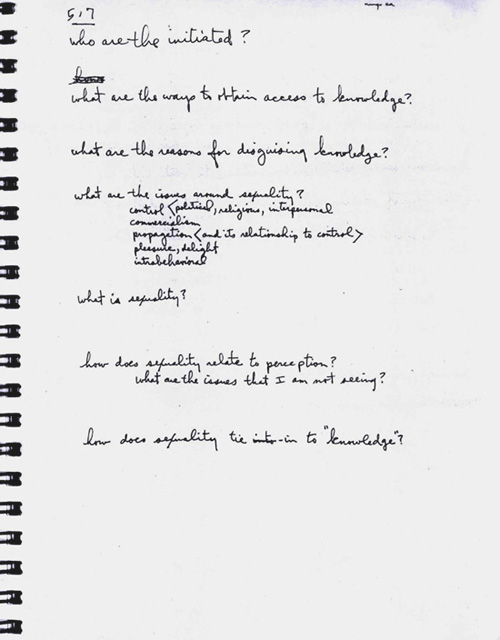 5.17
who are the initiated?
what are the ways to obtain access to knowledge?
what are the reasons for disguising knowledge?
what are the issues around sexuality?
control <political, religious, interpersonal
commercialism
propagation <and its relationship to control>
pleasure, delight
intrabehavioral
what is sexuality?
how does sexuality relate to perception?
what are the issues that I am not seeing?
how does sexuality tie into-in to "knowledge"?